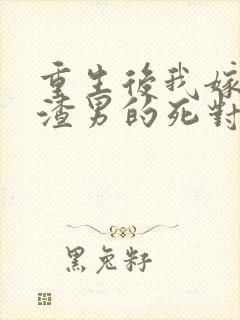 重生後我嫁
渣男的死對
黑兔籽